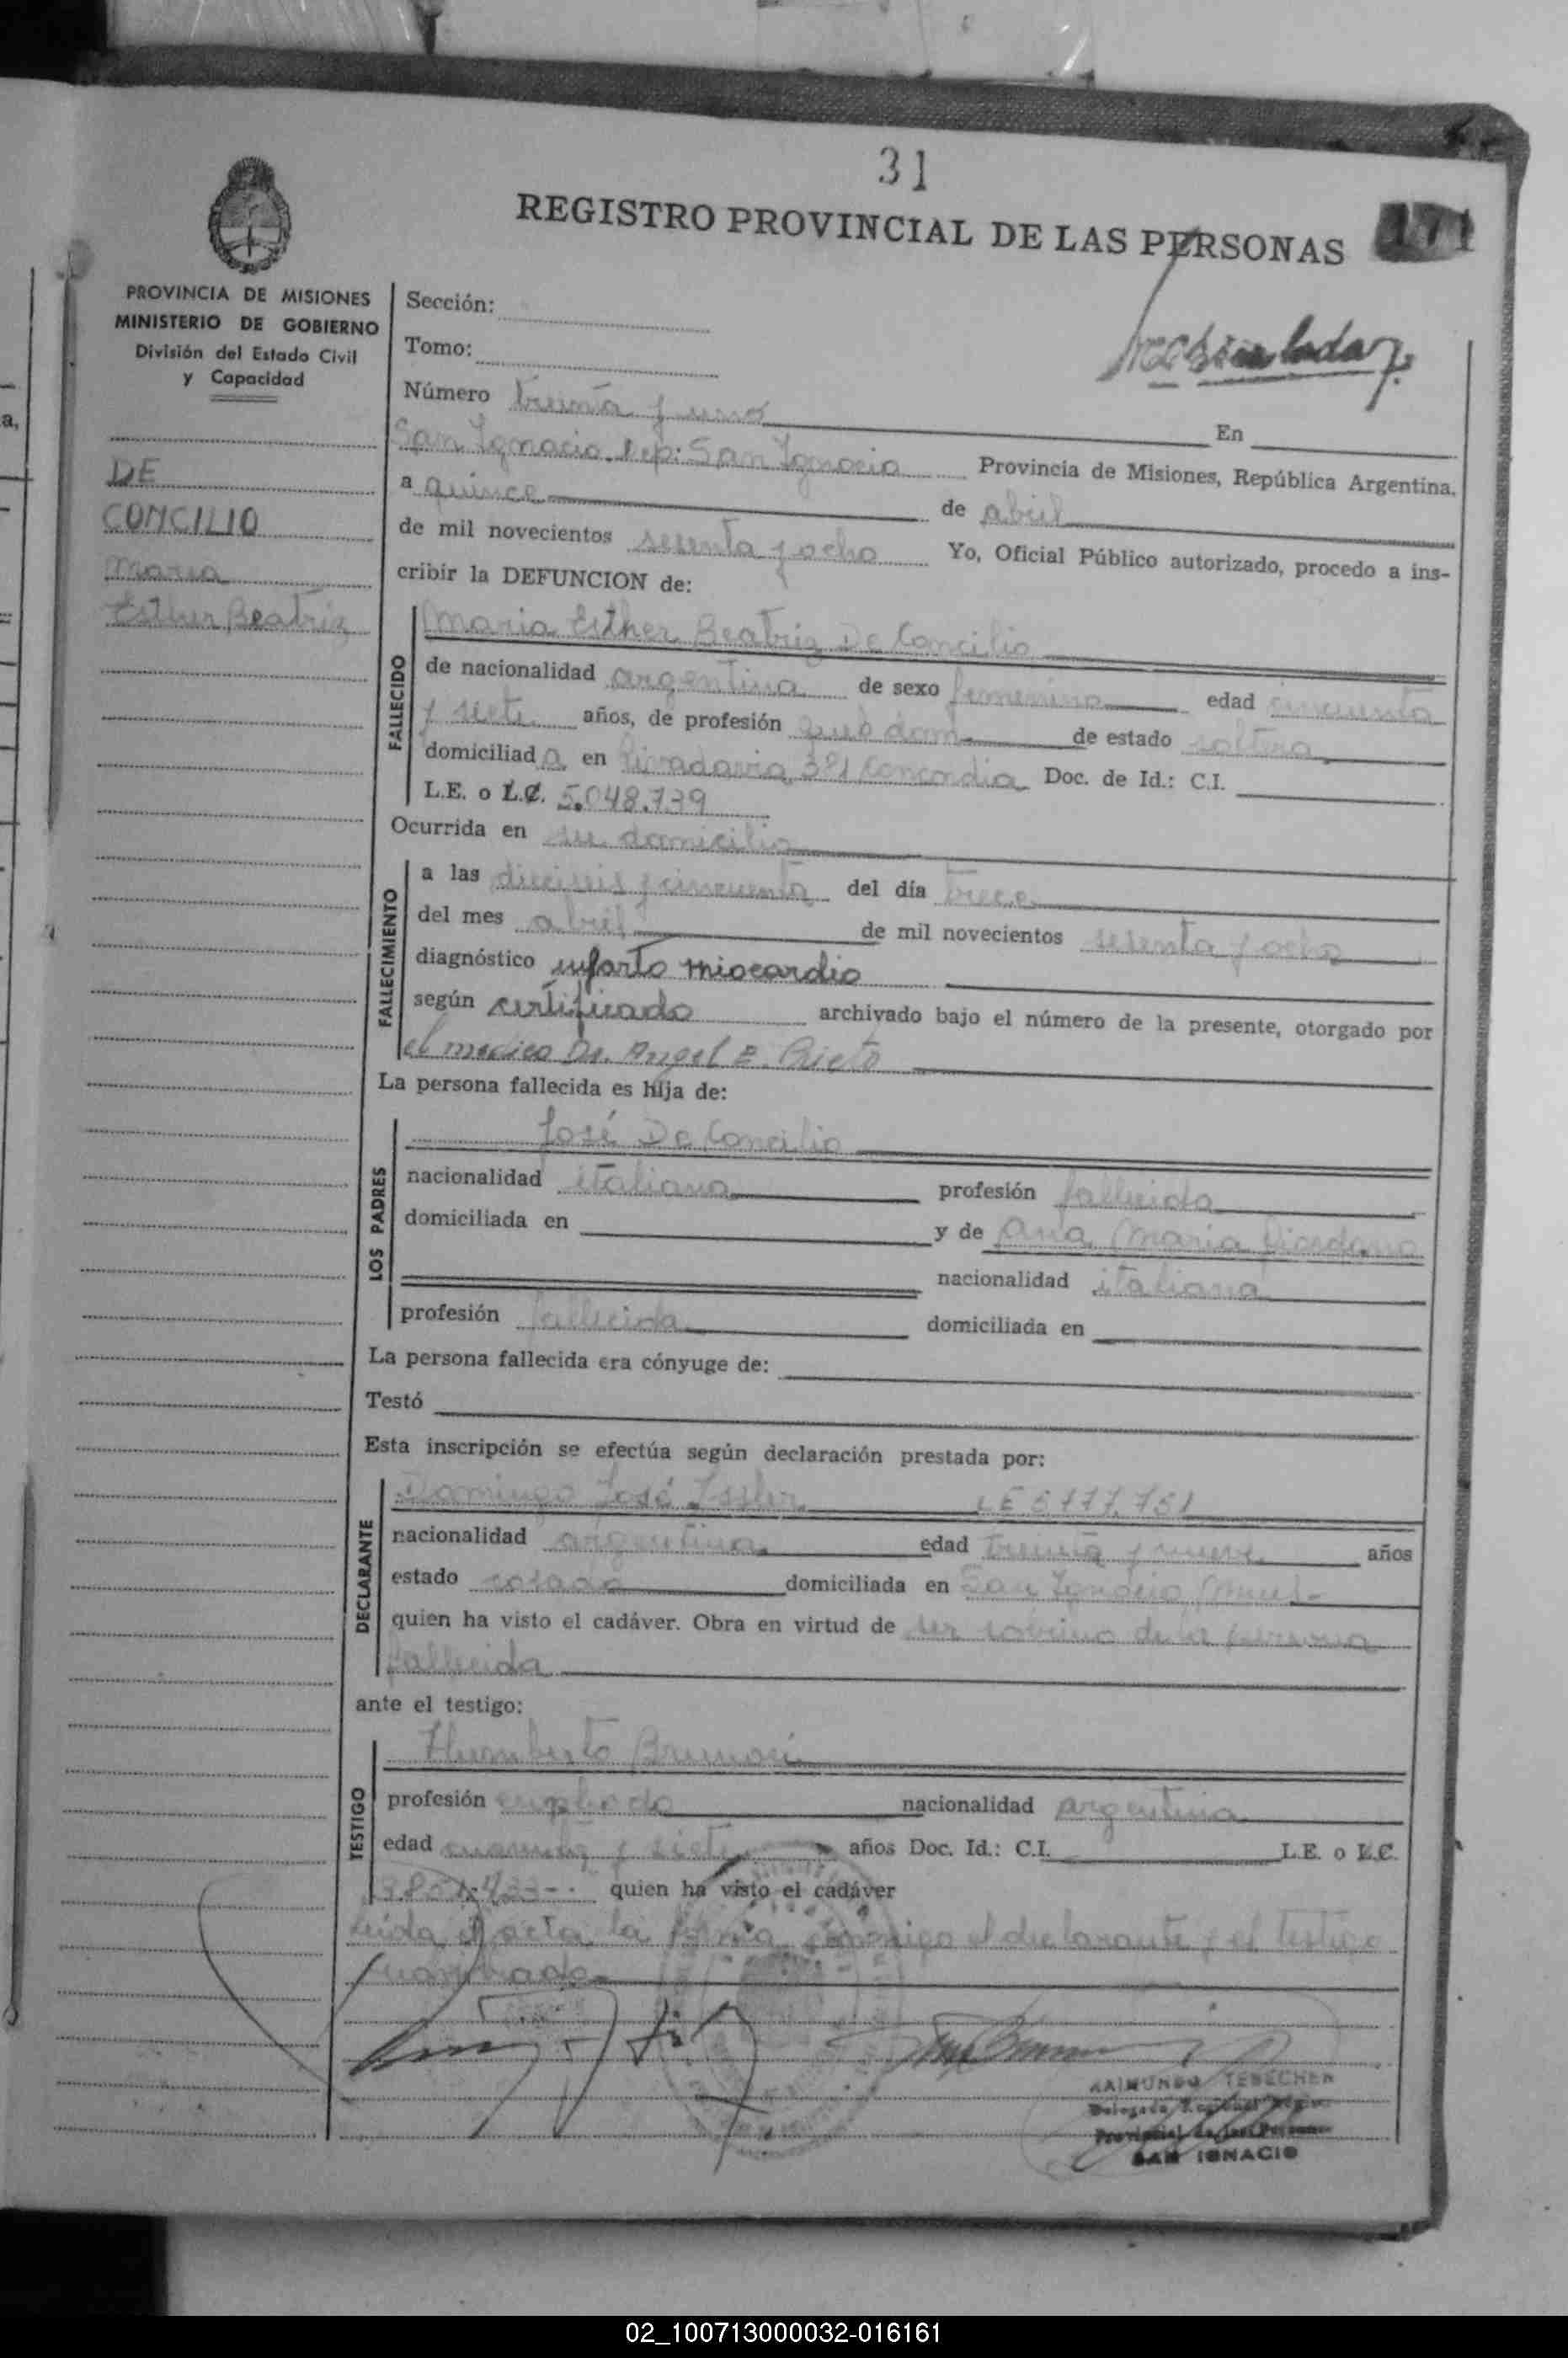 31
REGISTRO PROVINCIAL DE LAS PERSONAS
171
PROVINCIA DE MISIONES
MINISTERIO DE GOBIERNO
División del Estado Civil
y Capacidad
DE
CONCILIO
Maria
Esther Beatriz
Sección:
Tomo:
Número treinta y uno En
San Ignacio Dep: San Ignacio Provincia de Misiones, República Argentina,
a quince de abril
de mil novecientos sesenta y ocho Yo, Oficial Público autorizado, procedo a ins-
cribir la DEFUNCION de:
FALLECIDO
Maria Esther Beatriz De Concilio
de nacionalidad argentina de sexo femenino edad cincuenta
y siete años, de profesión queb dom de estado soltera
domiciliada en Rivadavia 381 Concordia Doc. de Id.: C.I.
L.E. o L.C. 5.048.739
Ocurrida en su domicilio
FALLECIMIENTO
a las dieciseis y cincuenta del día trece
del mes abril de mil novecientos sesenta y ocho
diagnóstico infarto miocardio
según certificado archivado bajo el número de la presente, otorgado por
el medico Dr. Angel E. Prieto
La persona fallecida es hija de:
LOS PADRES
José De Concilio
nacionalidad italiana profesión fallecido
domiciliada en y de Ana Maria Giordano
nacionalidad italiana
profesión fallecida domiciliada en
La persona fallecida era cónyuge de:
Testó
Esta inscripción se efectúa según declaración prestada por:
DECLARANTE
Domingo José LE 5777.751
nacionalidad argentina edad treinta y nueve años
estado casado domiciliada en San Ignacio
quien ha visto el cadáver. Obra en virtud de ser sobrino de la persona
fallecida
ante el testigo:
TESTIGO
Humberto
profesión empleado nacionalidad argentina
edad cuarenta y siete años Doc. Id.: C.I. L.E. o L.C.
quien ha visto el cadáver
Leida el acta la firma conmigo el declarante y el testigo
nombrado
RAIMUNDO TEBECHER
Delegado Regional
Provincial de las Personas
SAN IGNACIO
02_100713000032-016161